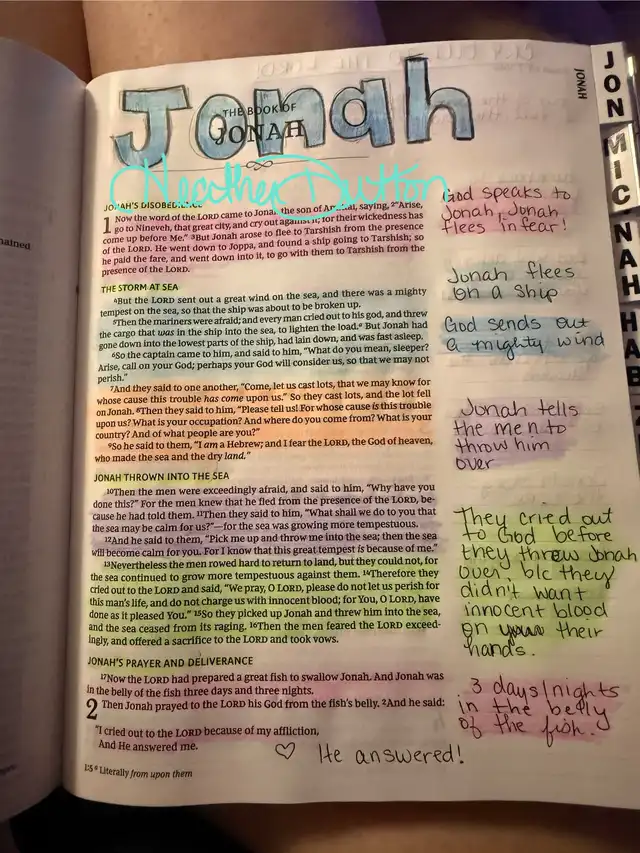 Jonah
THE BOOK OF
JONAH
Heather Dutton
JONAH
JON
MIC
NAH
HAB
JONAH'S DISOBEDIENCE
1 Now the word of the LORD came to Jonah the son of Amittai, saying, ²"Arise,
go to Nineveh, that great city, and cry out against it; for their wickedness has
come up before Me." ³But Jonah arose to flee to Tarshish from the presence
of the LORD. He went down to Joppa, and found a ship going to Tarshish; so
he paid the fare, and went down into it, to go with them to Tarshish from the
presence of the LORD.
God speaks to
Jonah, Jonah
flees in fear!
THE STORM AT SEA
⁴But the LORD sent out a great wind on the sea, and there was a mighty
tempest on the sea, so that the ship was about to be broken up.
⁵Then the mariners were afraid; and every man cried out to his god, and threw
the cargo that was in the ship into the sea, to lighten the load.ᵃ But Jonah had
gone down into the lowest parts of the ship, had lain down, and was fast asleep.
⁶So the captain came to him, and said to him, "What do you mean, sleeper?
Arise, call on your God; perhaps your God will consider us, so that we may not
perish."
⁷And they said to one another, "Come, let us cast lots, that we may know for
whose cause this trouble has come upon us." So they cast lots, and the lot fell
on Jonah. ⁸Then they said to him, "Please tell us! For whose cause is this trouble
upon us? What is your occupation? And where do you come from? What is your
country? And of what people are you?"
⁹So he said to them, "I am a Hebrew; and I fear the LORD, the God of heaven,
who made the sea and the dry land."
Jonah flees
on a ship
God sends out
a mighty wind
JONAH THROWN INTO THE SEA
¹⁰Then the men were exceedingly afraid, and said to him, "Why have you
done this?" For the men knew that he fled from the presence of the LORD, be-
cause he had told them. ¹¹Then they said to him, "What shall we do to you that
the sea may be calm for us?"—for the sea was growing more tempestuous.
¹²And he said to them, "Pick me up and throw me into the sea; then the sea
will become calm for you. For I know that this great tempest is because of me."
¹³Nevertheless the men rowed hard to return to land, but they could not, for
the sea continued to grow more tempestuous against them. ¹⁴Therefore they
cried out to the LORD and said, "We pray, O LORD, please do not let us perish for
this man's life, and do not charge us with innocent blood; for You, O LORD, have
done as it pleased You." ¹⁵So they picked up Jonah and threw him into the sea,
and the sea ceased from its raging. ¹⁶Then the men feared the LORD exceed-
ingly, and offered a sacrifice to the LORD and took vows.
Jonah tells
the men to
throw him
over
They cried out
to God before
they threw Jonah
over, b/c they
didn't want
innocent blood
on their
hands.
JONAH'S PRAYER AND DELIVERANCE
¹⁷Now the LORD had prepared a great fish to swallow Jonah. And Jonah was
in the belly of the fish three days and three nights.
2 Then Jonah prayed to the LORD his God from the fish's belly. ²And he said:
"I cried out to the LORD because of my affliction,
And He answered me.
3 days/nights
in the belly
of the fish.
♡ He answered!
1:5 ᵃ Literally from upon them